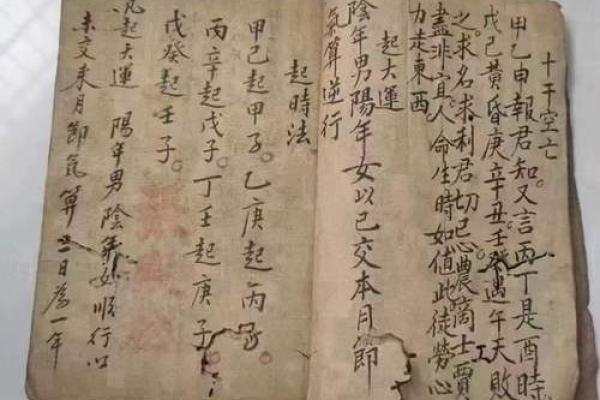 十干空亡
甲乙申報君知。又言丙丁是酉時
戊己黄昏庚辛丑。壬癸遇午天敗
之。求名求利君切忌。農商士賈工
盡非宜。人命生時如值此徒勞心
力走東西
起大運
陰年男陽年女以已交本月節
氣算逆行
起時法
甲己起甲子。乙庚起丙子。
丙辛起戊子。丁壬起庚子。
戊癸起壬子。
凡起大運 陽年男陰年女順行以
未交来月節氣算三日為一年